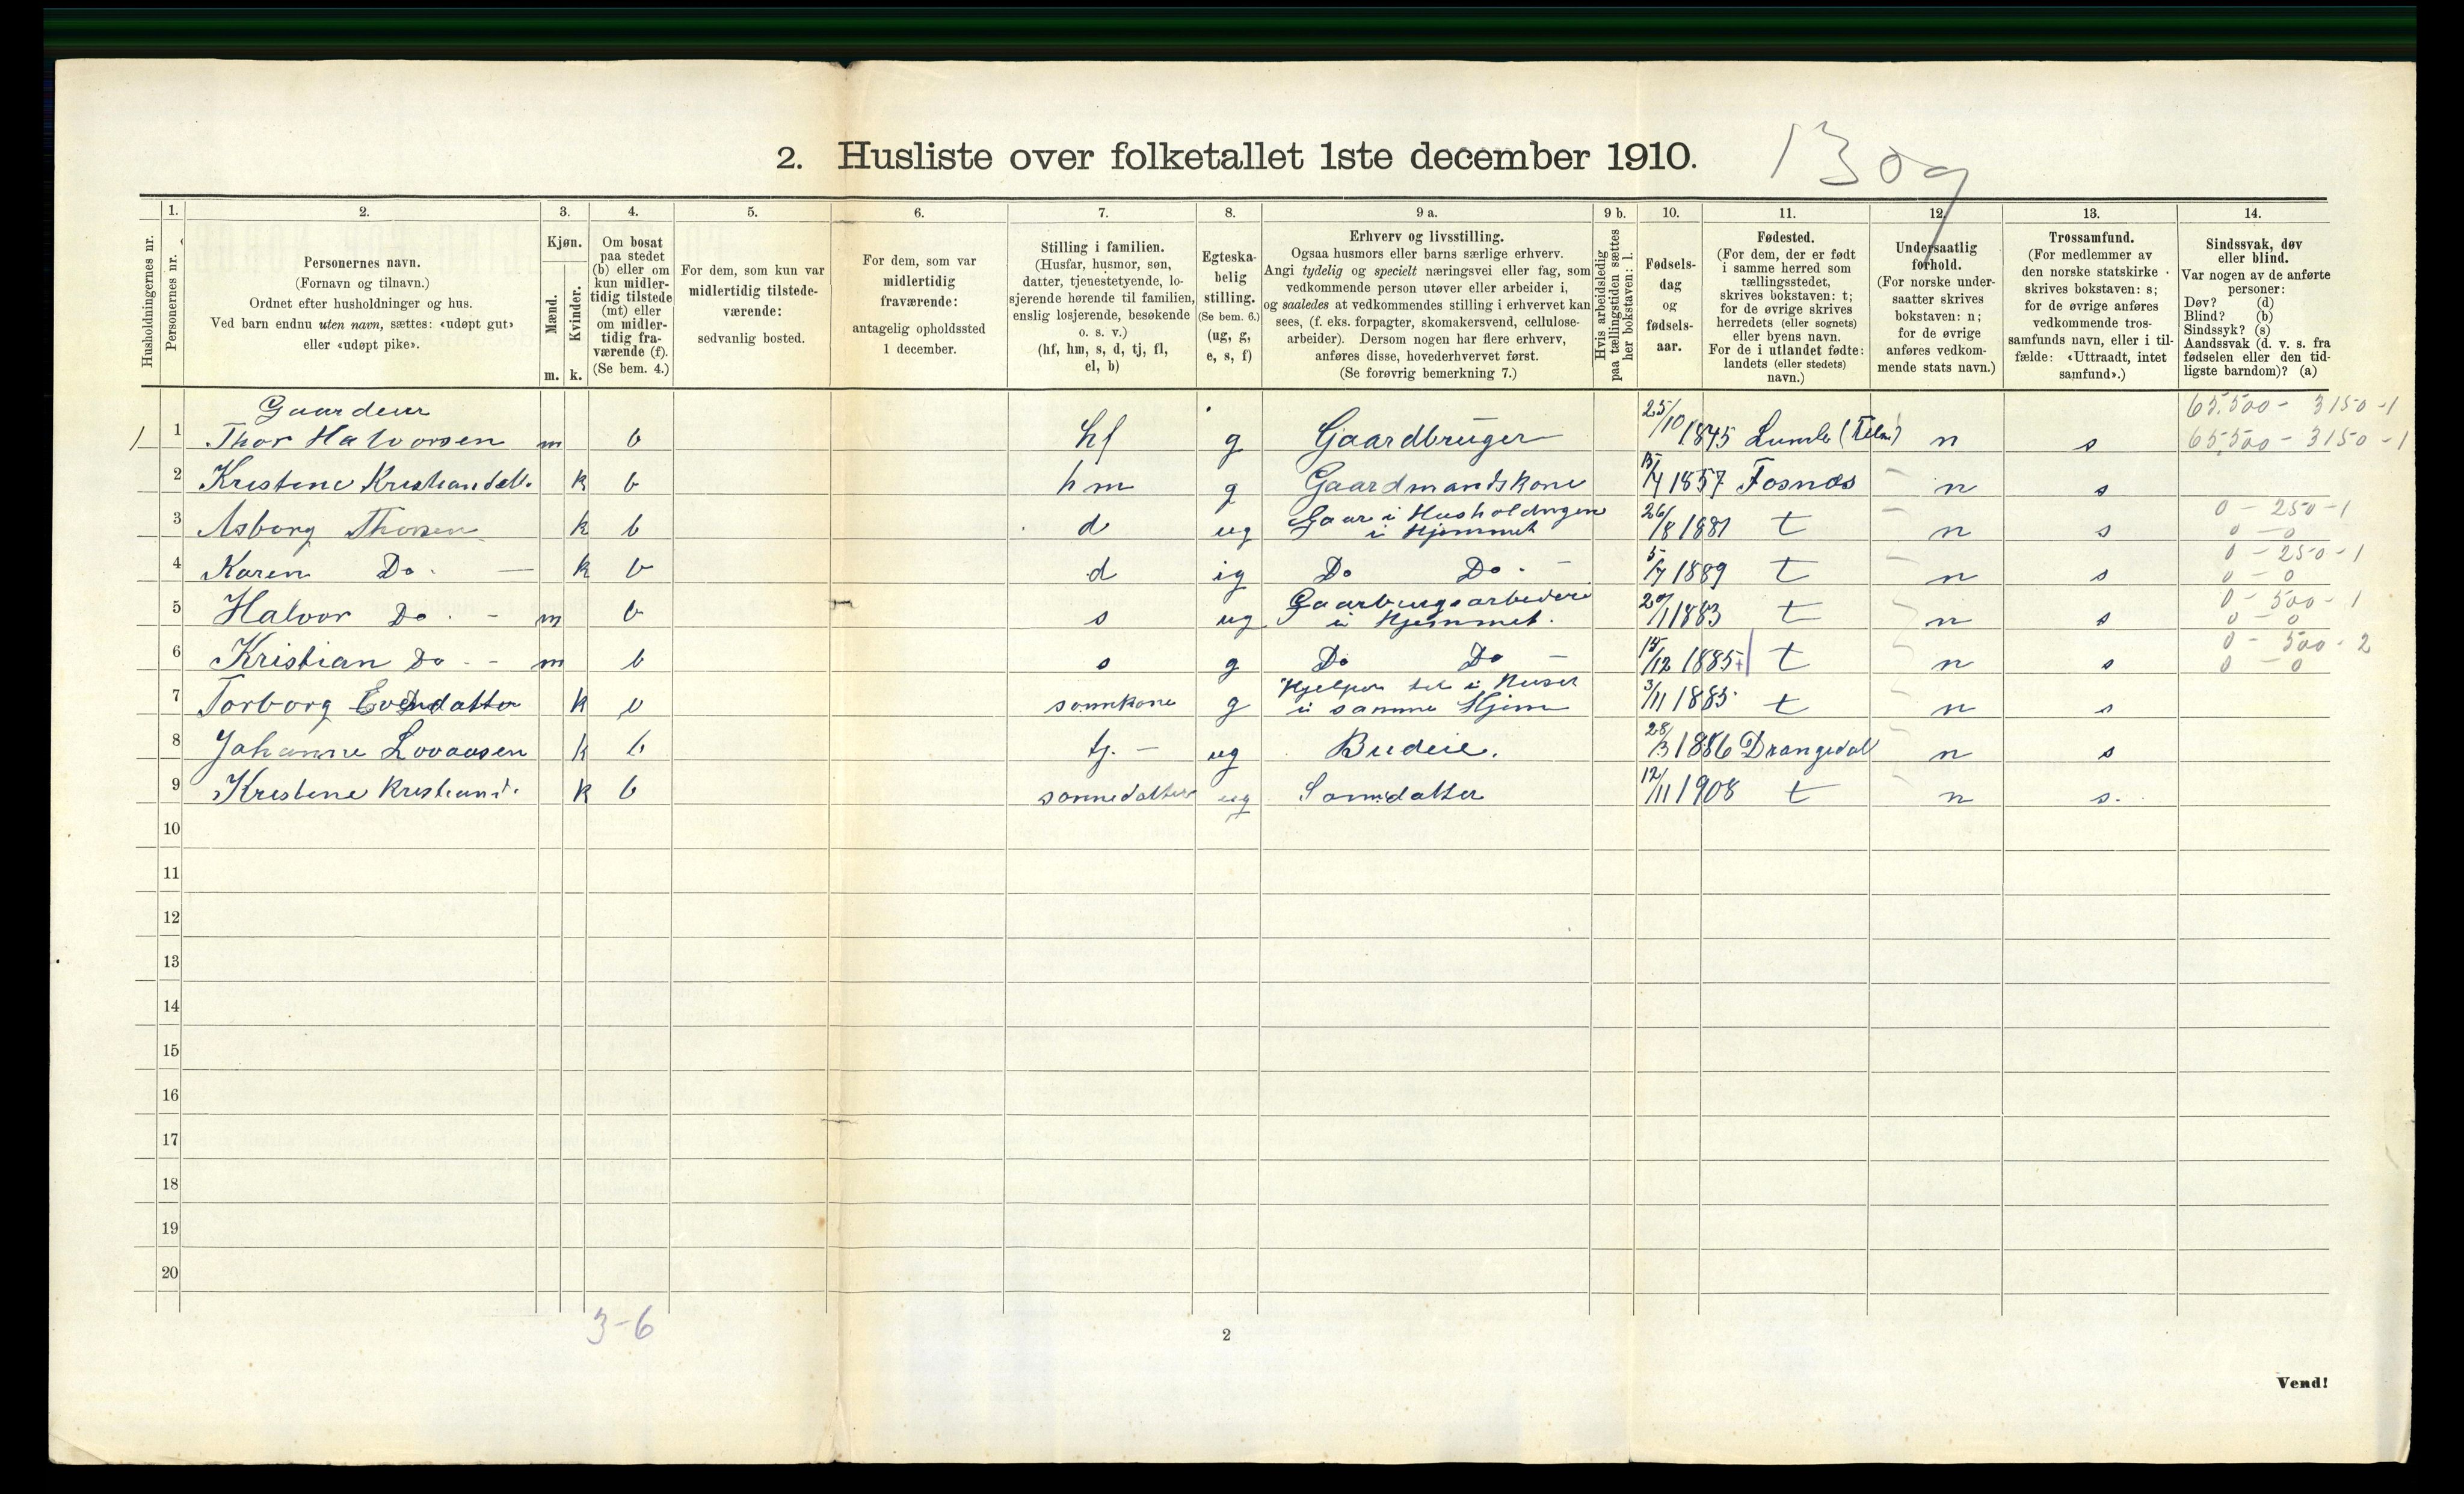 2. Husliste over folketallet 1ste december 1910.
13 og
1. 2. 3. 4. 5. 6. 7. 8. 9 a. 9 b. 10. 11. 12. 13. 14.
Husholdningernes nr.
Personernes nr.
Personernes navn.
(Fornavn og tilnavn.)
Ordnet efter husholdninger og hus.
Ved barn endnu uten navn, sættes: «udøpt gut»
eller «udøpt pike».
Kjøn.
Mænd.
Kvinder.
m. k.
Om bosat
paa stedet
(b) eller om
kun midler-
tidig tilstede
(mt) eller
om midler-
tidig fra-
værende (f).
(Se bem. 4.)
For dem, som kun var
midlertidig tilstede-
værende:
sedvanlig bosted.
For dem, som var
midlertidig
fraværende:
antagelig opholdssted
1 december.
Stilling i familien.
(Husfar, husmor, søn,
datter, tjenestetyende, lo-
sjerende hørende til familien,
enslig losjerende, besøkende
o. s. v.)
(hf, hm, s, d, tj, fl,
el, b)
Egteska-
belig
stilling.
(Se bem. 6.)
(ug, g,
e, s, f)
Erhverv og livsstilling.
Ogsaa husmors eller barns særlige erhverv.
Angi tydelig og specielt næringsvei eller fag, som
vedkommende person utøver eller arbeider i,
og saaledes at vedkommendes stilling i erhvervet kan
sees, (f. eks. forpagter, skomakersvend, cellulose-
arbeider). Dersom nogen har flere erhverv,
anføres disse, hovederhvervet først.
(Se forøvrig bemerkning 7.)
Hvis arbeidsledig
paa tællingstiden sættes
her bokstaven: l.
Fødsels-
dag
og
fødsels-
aar.
Fødested.
(For dem, der er født
i samme herred som
tællingsstedet,
skrives bokstaven: t;
for de øvrige skrives
herredets (eller sognets)
eller byens navn.
For de i utlandet fødte:
landets (eller stedets)
navn.)
Undersaatlig
forhold.
(For norske under-
saatter skrives
bokstaven: n;
for de øvrige
anføres vedkom-
mende stats navn.)
Trossamfund.
(For medlemmer av
den norske statskirke
skrives bokstaven: s;
for de øvrige anføres
vedkommende tros-
samfunds navn, eller i til-
fælde: «Uttraadt, intet
samfund».)
Sindssvak, døv
eller blind.
Var nogen av de anførte
personer:
Døv? (d)
Blind? (b)
Sindssyk? (s)
Aandssvak (d. v. s. fra
fødselen eller den tid-
ligste barndom)? (a)
Gaarden 65.500 - 3150 - 1
1 1 Thor Halvorsen m b hf g Gaardbruger 25/10 1845 (Telm) n s 65.500 - 3150 - 1
2 Kristene k b hm g Gaardmandskone 1857 Fosnæs n s
3 Asborg Thorsen k b d ug Gaar i Husholdngen i Hjemmet 26/8 1881 t n s 0 - 250 - 1
0 - 0
4 Karen Do. k b d ig Do Do. 5/7 1889 t n s 0 - 250 - 1
0 - 0
5 Halvor Do. m b s ug i Hjemmet. 20/1 1883 t n s 0 - 500 - 1
0 - 0
6 Kristian Do - m b s g Do Do 15/12 1885 t n s 0 - 500 - 2
0 - 0
7 Torborg k b sønnkone g Hjelper til i Huset i samme Hjem 3/11 1885 t n s
8 Johanne Lovaasen k b tj. ug Budeie. 28/3 1886 Drangedal n s
9 Kristene Kristiansd. k b sønnedatter ug Sønnedatter 12/11 1908 t n s.
10
11
12
13
14
15
16
17
18
19
20
3-6
2
Vend!